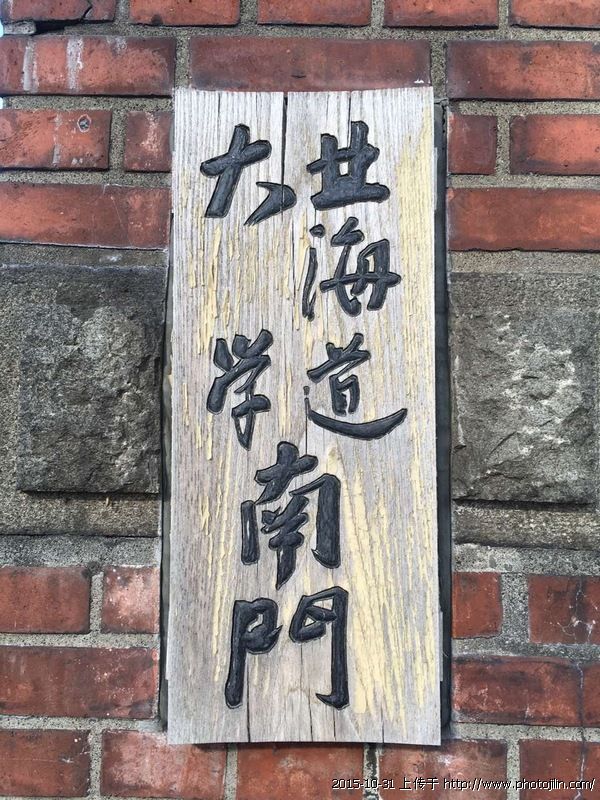 北海道
大学
南門
2015-10-31 上传于 http://www.photojilin.com/